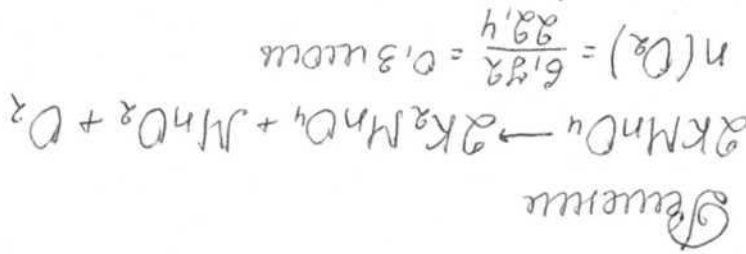 Решение
2KMnO₄ → 2K₂MnO₄ + MnO₂ + O₂
n(O₂) = 6,72/22,4 = 0,3 моль